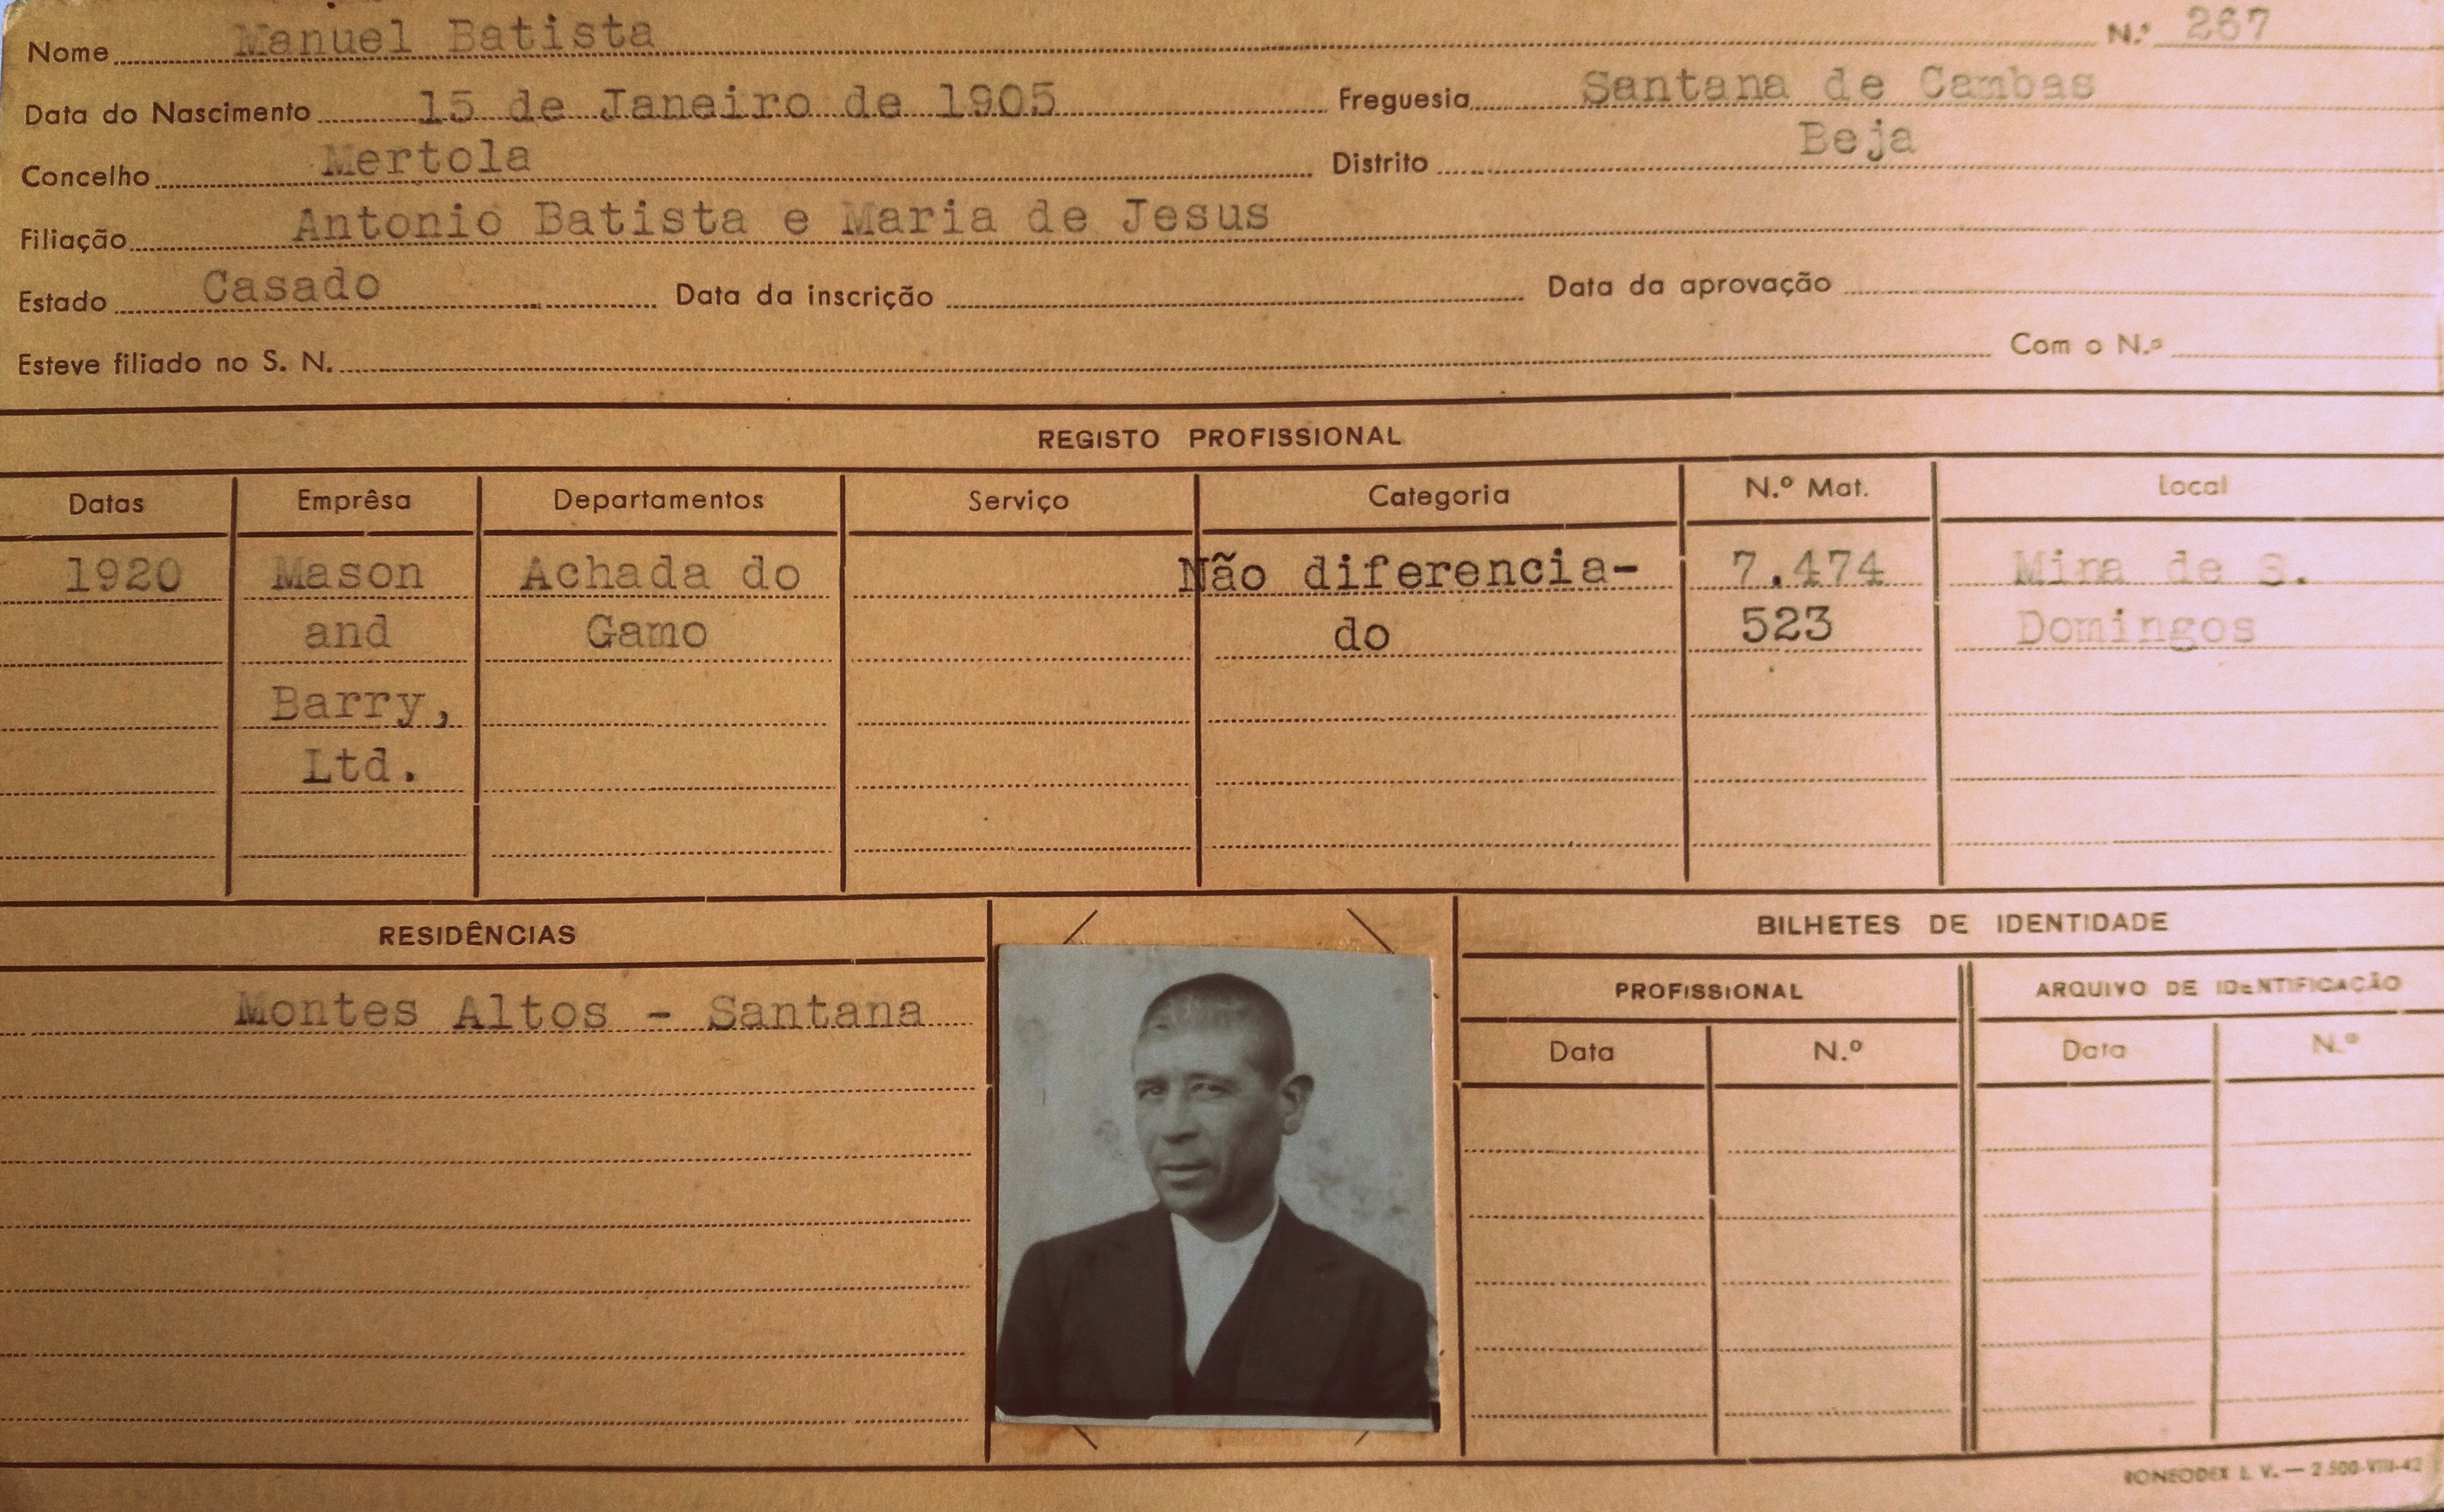 Nome Manuel Batista N.º 267
Data do Nascimento 15 de Janeiro de 1905 Freguesia Santana de Cambas
Concelho Mertola Distrito Beja
Filiação Antonio Batista e Maria de Jesus
Estado Casado Data da inscrição Data da aprovação
Esteve filiado no S. N. Com o N.º
REGISTO PROFISSIONAL
Datas Emprêsa Departamentos Serviço Categoria N.º Mat. Local
1920 Mason Achada do Não diferencia- 7.474 Mina de S.
and Gamo do 523 Domingos
Barry,
Ltd.
RESIDÊNCIAS BILHETES DE IDENTIDADE
PROFISSIONAL ARQUIVO DE IDENTIFICAÇÃO
Montes Altos - Santana
Data N.º Data N.º
RONEODEX L. V. — 2.500-VIII-42